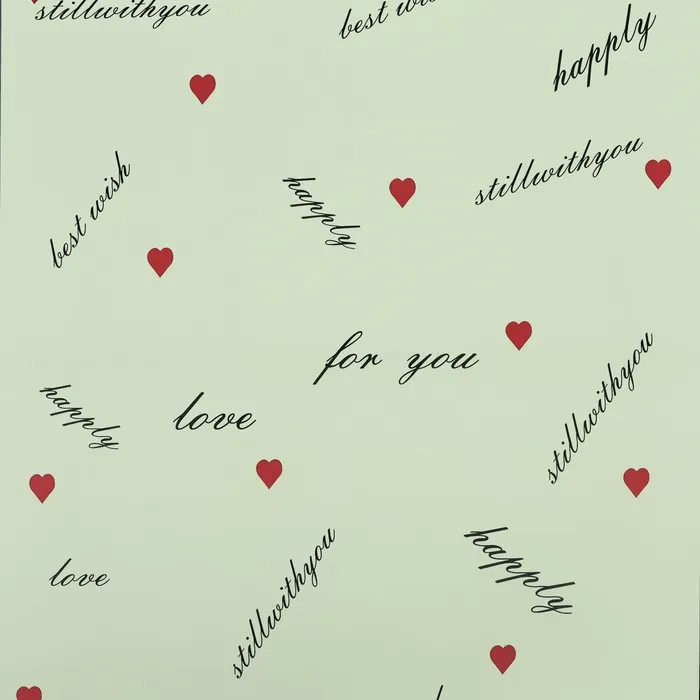 stillwithyou
best wi
happly
stillwithyou
best wish
happly
for you
stillwithyou
happly
love
happly
stillwithyou
love